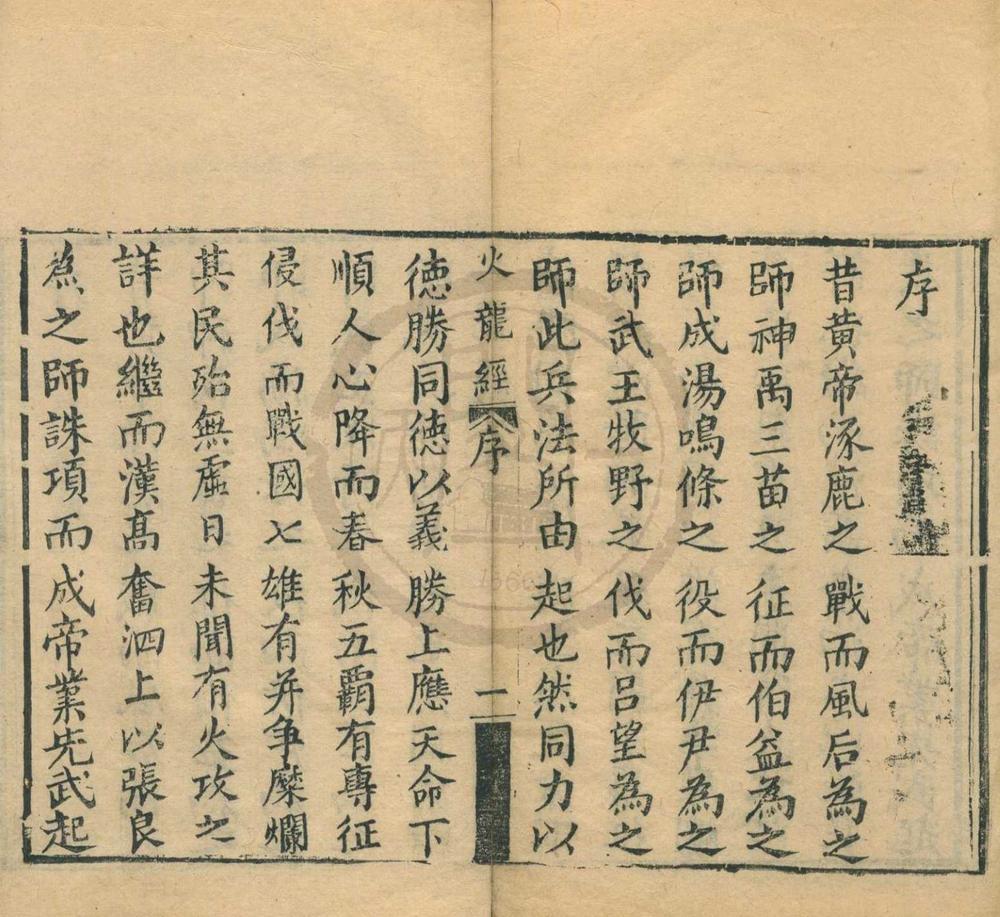 序
昔黄帝涿鹿之戰而風后為之
師神禹三苗之征而伯益為之
師成湯鳴條之役而伊尹為之
師武王牧野之伐而吕望為之
師此兵法所由起也然同力以
火龍經 序 一
徳勝同徳以義勝上應天命下
順人心降而春秋五覇有專征
侵伐而戰國七雄有并争糜爛
其民殆無虚日未聞有火攻之
詳也繼而漢高奮泗上以張良
為之師誅項而成帝業光武起